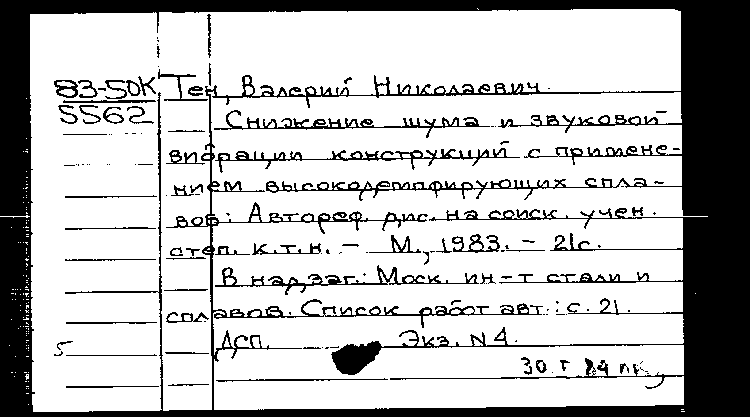 83-50К Тен, Валерий Николаевич.
5562 Снижение шума и звуковой
вибрации конструкций с примене-
нием высокодемпфирующих спла-
вов: Автореф. дис. на соиск. учен.
степ. к.т.н. – М., 1983. – 21с.
В надзаг.: Моск. ин-т стали и
сплавов. Список работ авт.: с. 21.
Дсп. Экз. N4.
5
30